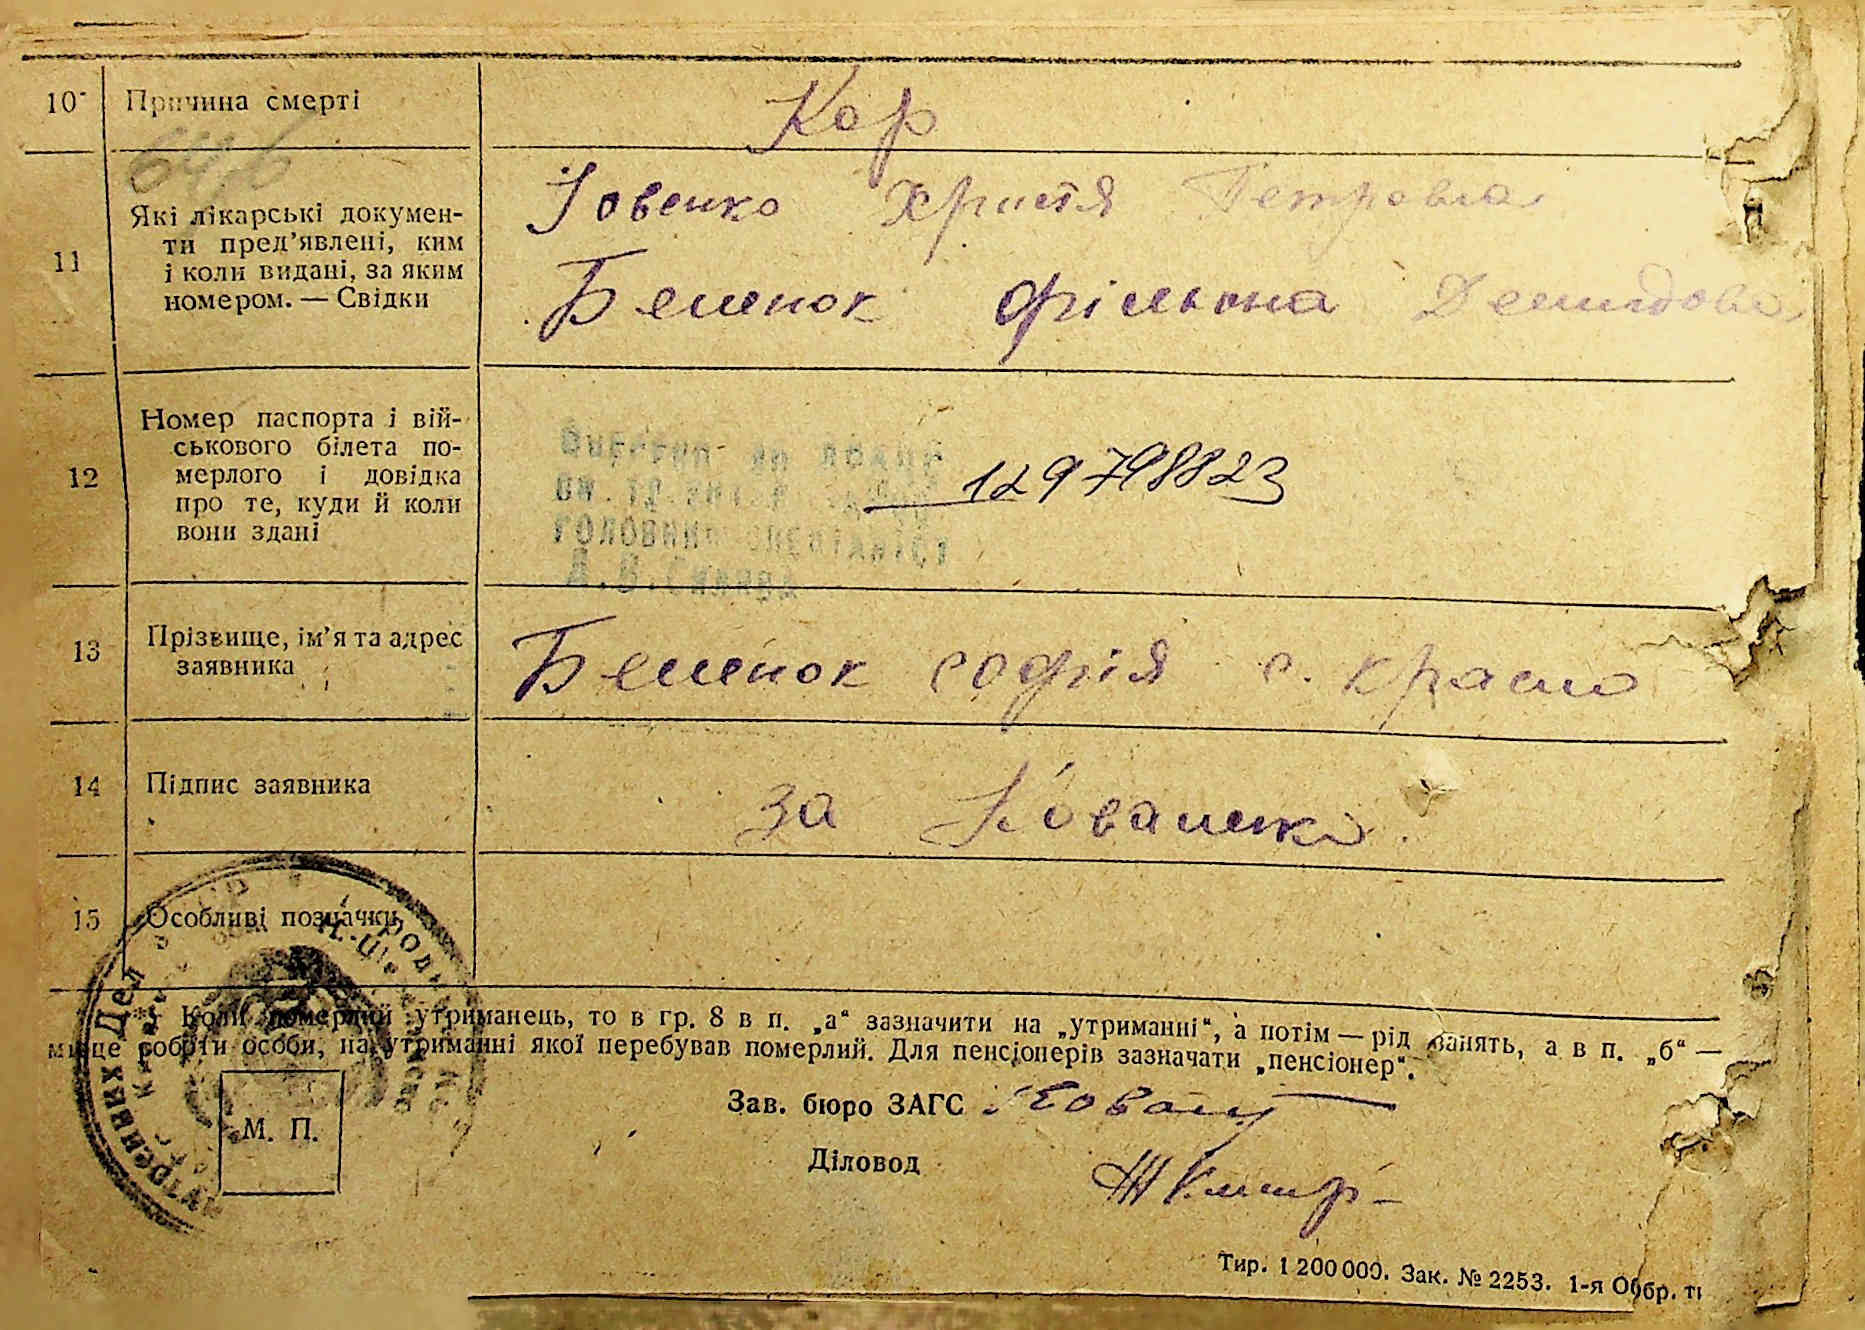 10 Причина смерті Кор
64,6
11 Які лікарські докумен-
ти пред'явлені, ким
і коли видані, за яким
номером. — Свідки
Іовенко Христя Петровна
Беменок Фільона Демидовна
12 Номер паспорта і вій-
ськового білета по-
мерлого і довідка
про те, куди й коли
вони здані
129798823
головний спеціаліст
13 Прізвище, ім'я та адрес
заявника
Беменок софія с. красно
14 Підпис заявника за Коваленко
15 Особливі позначки
Коли померлий утриманець, то в гр. 8 в п. „а“ зазначити на „утриманні“, а потім — рід занять, а в п. „б“ —
місце роботи особи, на утриманні якої перебував померлий. Для пенсіонерів зазначати „пенсіонер“.
Зав. бюро ЗАГС
М. П.
Діловод
Тир. 1 200 000. Зак. № 2253. 1-я Обр. ти